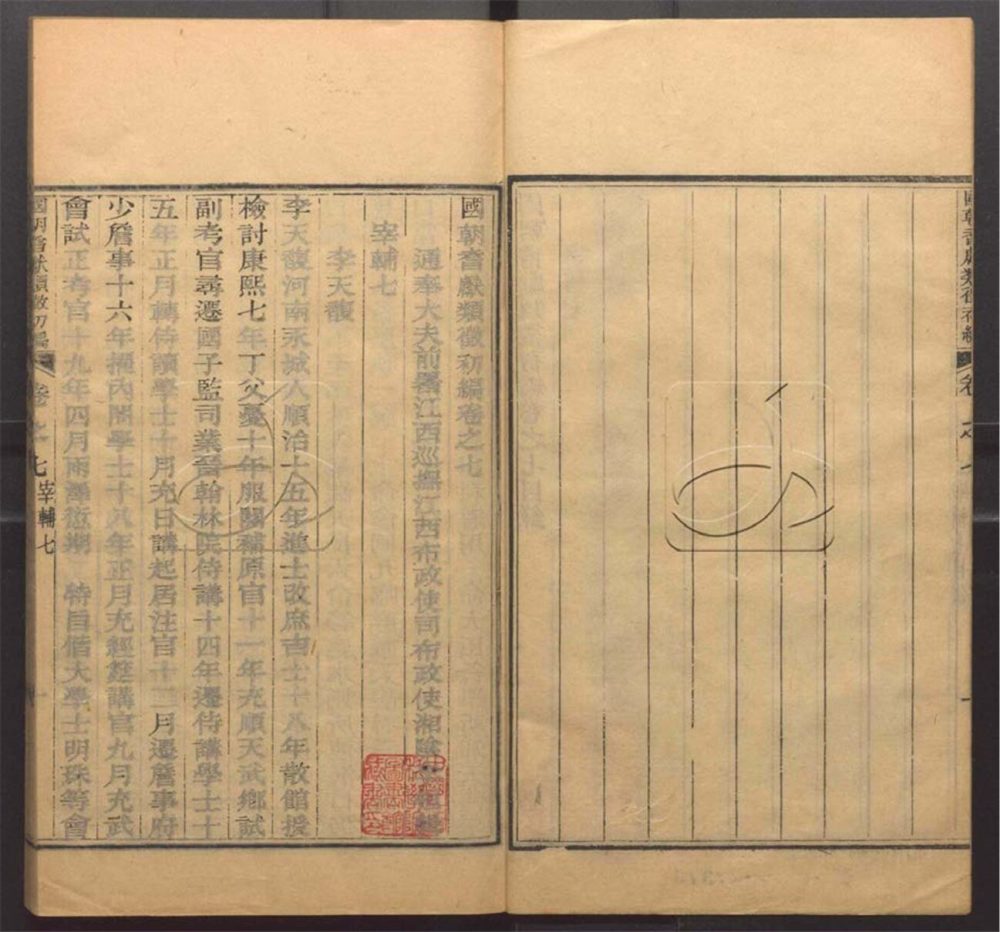 國朝耆獻類徵初編
國朝耆獻類徵初編卷之七
通奉大夫前署江西巡撫江西布政使司布政使湘陰
宰輔七
李天馥
李天馥河南永城人順治十五年進士改庶吉士十八年散館授
檢討康熙七年丁父憂十年服闋補原官十一年充順天武鄉試
副考官尋遷國子監司業晉翰林院侍講十四年遷侍講學士十
五年正月轉侍讀學士十月充日講起居注官十二月遷詹事府
少詹事十六年擢內閣學士十八年正月充經筵講官九月充武
會試正考官十九年四月雨澤愆期 特旨偕大學士明珠等會
國朝耆獻類徵初編 卷之七 宰輔七 一